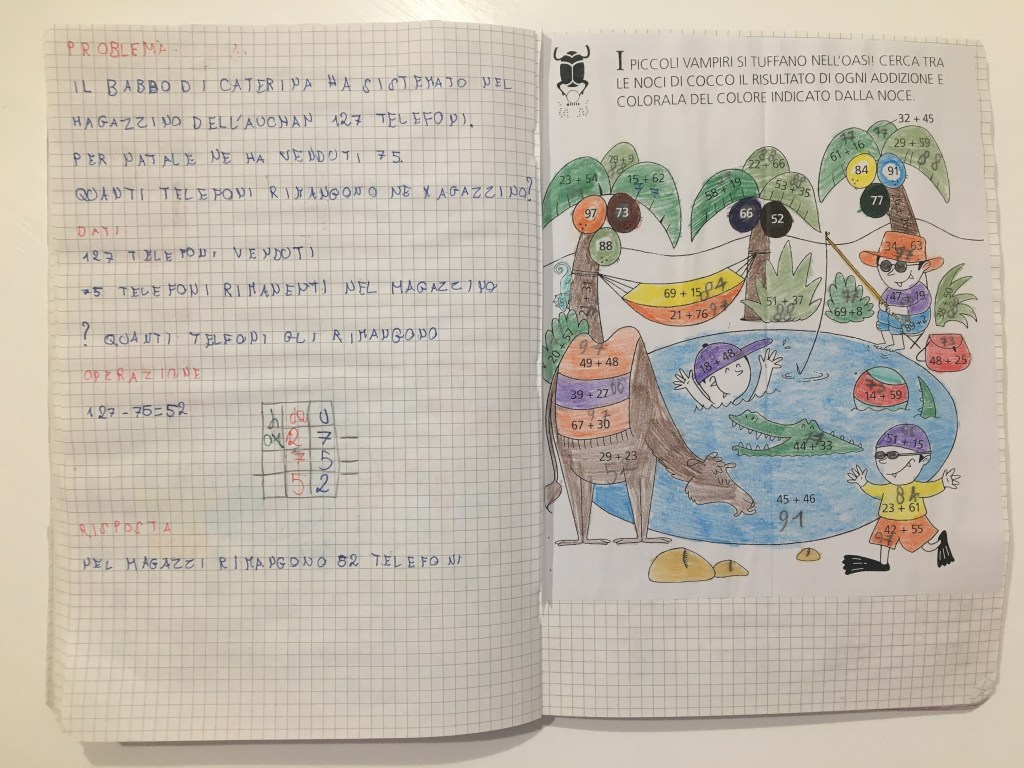 PROBLEMA.
IL BABBO DI CATERINA HA SISTEMATO NEL
MAGAZZINO DELL'AUCHAN 127 TELEFONI.
PER NATALE NE HA VENDUTI 75.
QUANTI TELEFONI RIMANGONO NE MAGAZZINO?
DATI
127 TELEFONI VENDOTI
75 TELEFONI RIMANENTI NEL MAGAZZINO
? QUANTI TELEFONI GLI RIMANGONO
OPERAZIONE
127-75=52
h da u
2 7 —
7 5 =
5 2
RISPOSTA
NEL MAGAZZI RIMANGONO 52 TELEFONI
I PICCOLI VAMPIRI SI TUFFANO NELL'OASI! CERCA TRA
LE NOCI DI COCCO IL RISULTATO DI OGNI ADDIZIONE E
COLORALA DEL COLORE INDICATO DALLA NOCE.
32 + 45
61 + 16 77
29 + 59 88
79 + 9
23 + 54
15 + 62 77
22 + 66 88
58 + 19
53 + 35
84
91
77
97
73
88
66
52
34 + 63 97
69 + 15 84
21 + 76 97
51 + 37 88
69 + 8 77
47 + 19
89 + 2
20 + 57
73
48 + 25
97
49 + 48
39 + 27
97
67 + 30
29 + 23
18 + 48
14 + 59
44 + 33
51 + 15
45 + 46
91
84
23 + 61
42 + 55
97